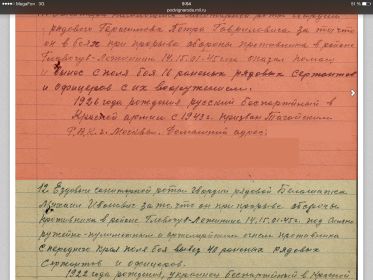 МегаФон 3G 9:54 51 %
podvignaroda.mil.ru
рядового Герасимова Петра Гавриловича за то что
он в боях при прорыве обороны противника в районе
14.15.01.45 года оказал помощь
и вынес с поля боя 16 раненых рядовых сержантов
и офицеров с их вооружением.
1926 года рождения русский беспартийный в
Красной армии с 1943 г. призван
Р.В.К. г. Москвы. Домашний адрес:
12. Ездового санитарной роты гвардии рядовой
Михаил Иванович за то что он при прорыве обороны
противника в районе 14.15.01.45г. под
ружейно-пулеметным и артиллерийским огнем противника
с переднего края поля боя вывез 40 раненых рядовых
сержантов и офицеров.
1922 года рождения, украинец беспартийный в Красной